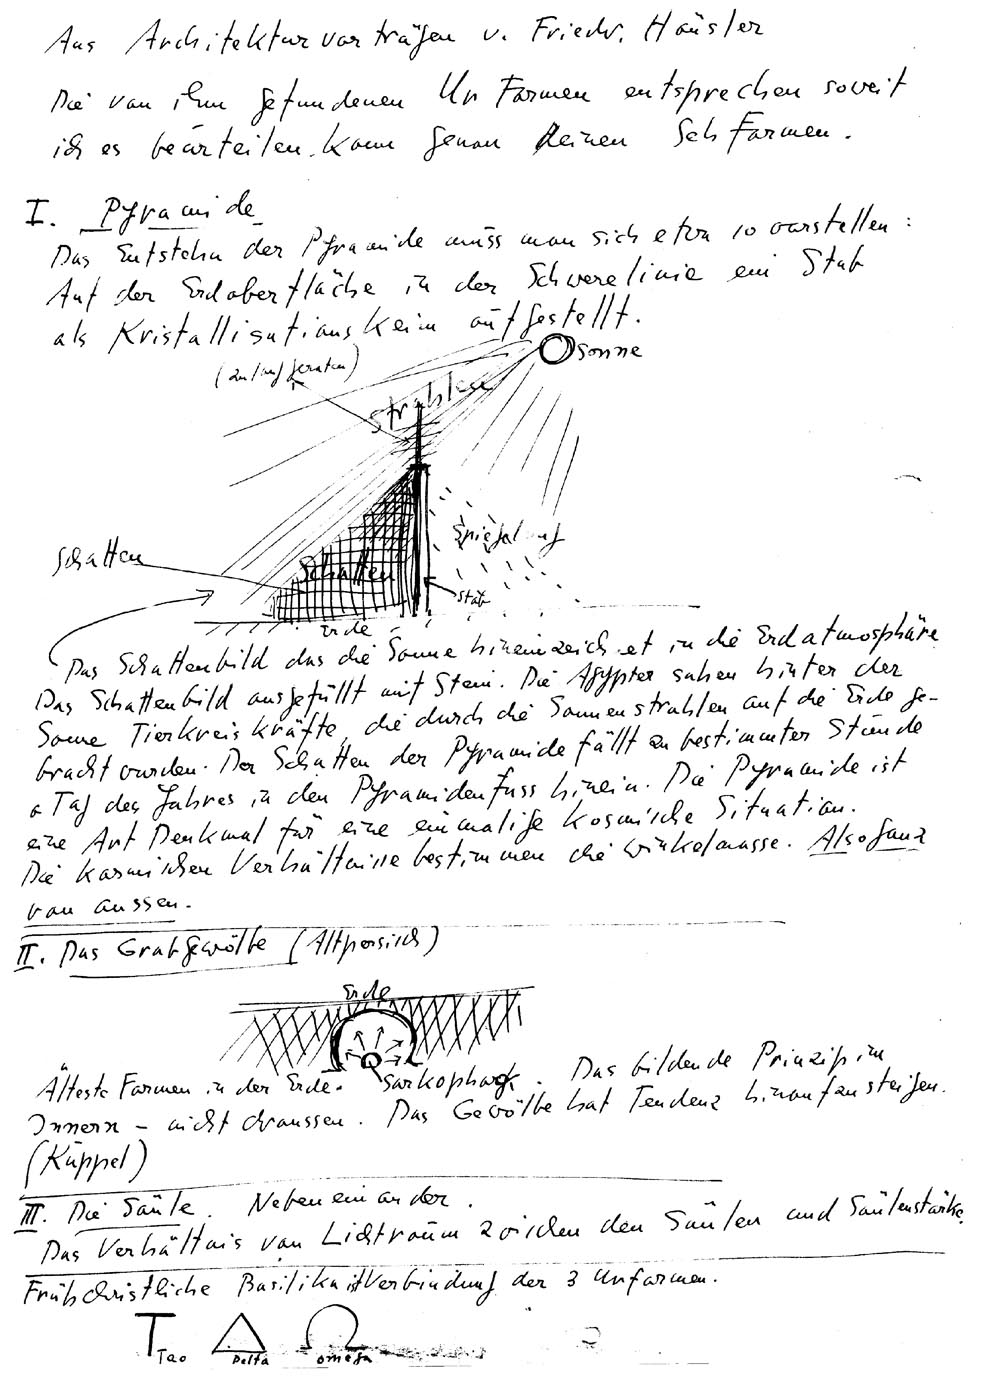 Aus Architekturvorträgen v. Friedr. Häusler
Die von ihm gefundenen Ur Formen entsprechen soweit
ich es beurteilen kann genau deinen Seh Formen.
I. Pyramide
Das Entstehn der Pyramide muss man sich etwa so vorstellen:
Auf der Erdoberfläche in der Schwerelinie ein Stab
als Kristallisationskeim aufgestellt.
Sonne
Strahlen
Schatten
Schatten
Spiegelung
Stab
Erde
Das Schattenbild das die Sonne hineinzeichnet in die Erdatmosphäre
Das Schattenbild ausgefüllt mit Stein. Die Ägypter sahen hinter der
Sonne Tierkreiskräfte, die durch die Sonnenstrahlen auf die Erde ge-
bracht wurden. Der Schatten der Pyramide fällt zu bestimmter Stunde
a Tag des Jahres in den Pyramidenfuss hinein. Die Pyramide ist
eine Art Denkmal für eine einmalige kosmische Situation.
Die kosmischen Verhältnisse bestimmen die Winkelmasse. Also ganz
von aussen.
II. Das Grabgewölbe (Altpersisch)
Erde
Älteste Formen in der Erde. Sarkophag. Das bildende Prinzip im
Innern - nicht draussen. Das Gewölbe hat Tendenz hinaufzusteigen.
(Kuppel)
III. Die Säule. Nebeneinander.
Das Verhältnis von Lichtraum zwischen den Säulen und Säulenstärke.
Frühchristliche Basilika ist Verbindung der 3 Urformen.
T Tao Δ Delta Ω omega